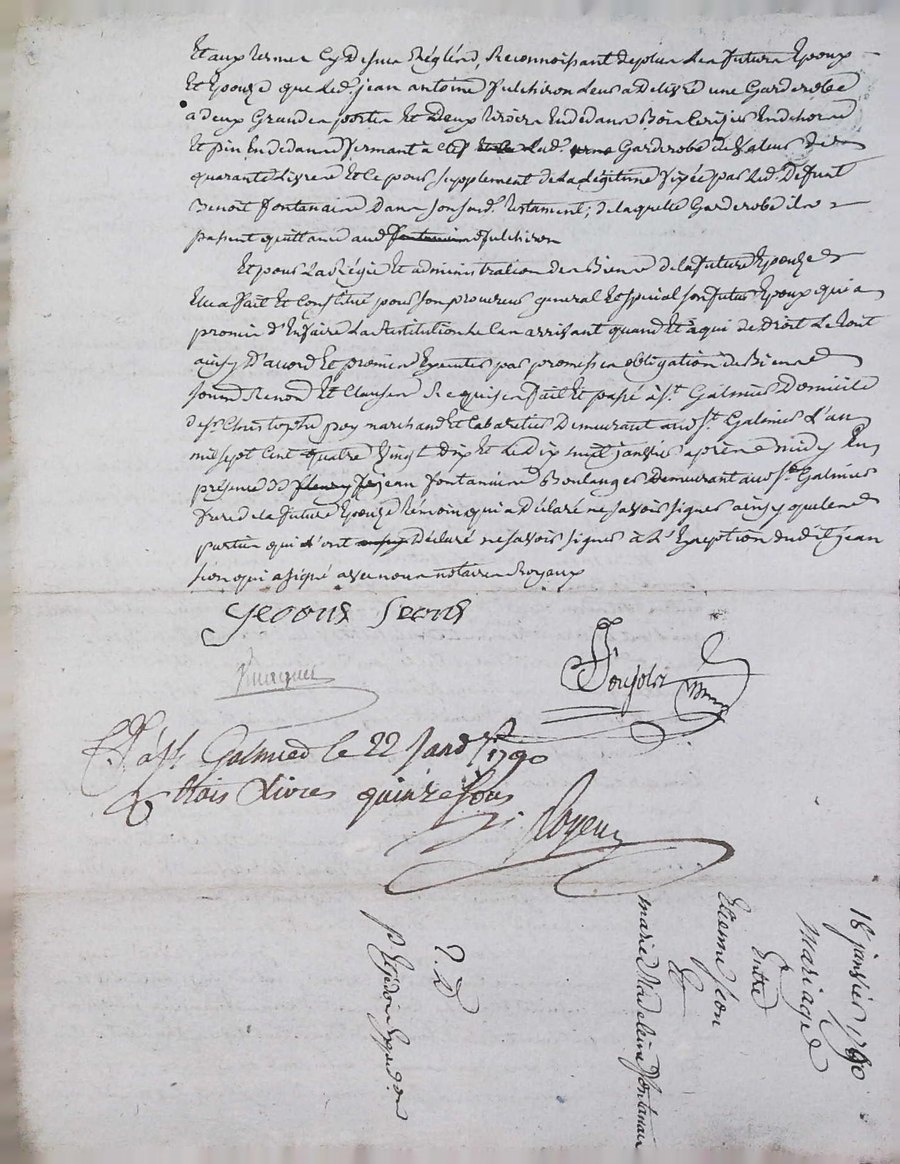 Et aux termes cy dessus Réglés, Reconnoissant de plus les futurs Epoux
Et Epouze que led. jean antoine fulchiron leur a Delivré une Garderobe
a deux Grandes portes Et Deux tiroirs En dedans Bois Cerisier En dehors
Et pin En dedans fermant à clef Lad. Garderobe de Valeur de
quarante Livres Et ce pour supplement de La légitime fixée par led. Defunt
Benoit fontanaire Dans son sud. testament, de laquelle Garderobe ils
passent quittance aud fulchiron
Et pour La Régie Et administration des Biens de la future Epouze
Elle a fait Et Constitué pour son procureur general Et special son futur Epoux qui a
promis d'En faire La Restitution le Cas arrivant quand Et à qui de droit Le tout
ainsy D'acord Et promis Executer par promesses obligation de Biens
soumis Renon Et Clauses Requises fait Et passé à St Galmier Domicile
de sr Christophe poy marchand Et Cabaretier Demeurant aud St. Galmier L'an
mil sept Cent quatre Vingt Dix Et le Dix huit janvier après midy En
présence de jean fontanaire Boulanger Demeurant aud St Galmier
frere de la future Epouze temoin qui a Déclaré ne savoir signer ainsy que les
parties qui n'ont Déclaré ne savoir signer à L'Exception dudit jean
sion qui a signé avec nous notaires Royaux
C à St. Galmier le 22 Janv 1790
trois Livres quinze sous
18 janvier 1790
Mariage
Entre
Etienne sion
Et
marie Madeleine fontanaire
P. D
p Expédié